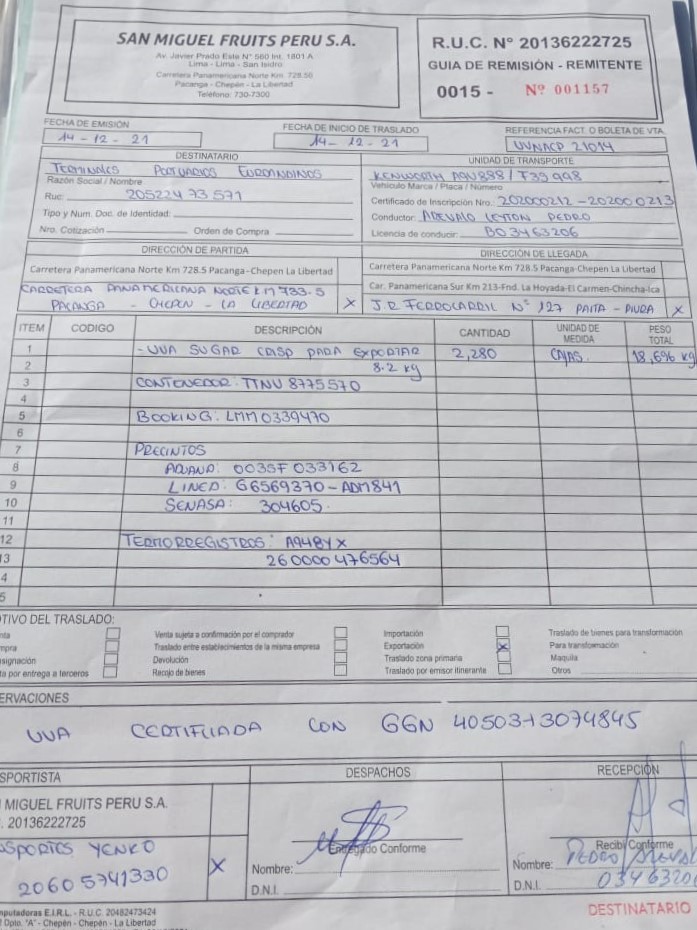 SAN MIGUEL FRUITS PERU S.A.
Av. Javier Prado Este N° 560 Int. 1801 A
Lima - Lima - San Isidro
Carretera Panamericana Norte Km 728.5
Pacanga - Chepén - La Libertad
Teléfono: 730-7300
R.U.C. N° 20136222725
GUIA DE REMISIÓN - REMITENTE
0015 - Nº 001157
FECHA DE EMISIÓN
14-12-21
FECHA DE INICIO DE TRASLADO
14-12-21
REFERENCIA FACT. O BOLETA DE VTA.
UVNACP 21014
DESTINATARIO
TERMINALES PORTUARIOS EUROANDINOS
Razón Social / Nombre
Ruc: 20522473571
Tipo y Num. Doc. de Identidad:
Nro. Cotización Orden de Compra
UNIDAD DE TRANSPORTE
KENWORTH / T3S998
Vehículo Marca / Placa / Número
Certificado de Inscripción Nro. 202000212-202000213
Conductor: AREVALO LEYTON PEDRO
Licencia de conducir: B03463206
DIRECCIÓN DE PARTIDA
Carretera Panamericana Norte Km 728.5 Pacanga-Chepen La Libertad
CARRETERA PANAMERICANA NORTE KM 733.5
PACANGA - CHEPEN - LA LIBERTAD X
DIRECCIÓN DE LLEGADA
Carretera Panamericana Norte Km 728.5 Pacanga-Chepen La Libertad
Car. Panamericana Sur Km 213-Fnd. La Hoyada-El Carmen-Chincha-Ica
JR FERROCARRIL N° 127 PAITA - PIURA X
ITEM CODIGO DESCRIPCIÓN CANTIDAD UNIDAD DE MEDIDA PESO TOTAL
1 - UVA SUGAR CRISP PARA EXPORTAR 2,280 CAJAS. 18,696 kg
2 8.2 kg
3 CONTENEDOR: TTNU 8775570
4
5 BOOKING: LMM0339470
6
7 PRECINTOS
8 ADUANA: 0035F 033162
9 LINEA: G6569370-ADM841
10 SENASA: 304605.
11
12 TERMORREGISTROS: A948YX
13 260000476564
4
5
OTIVO DEL TRASLADO:
nta
mpra
signación
ta por entrega a terceros
Venta sujeta a confirmación por el comprador
Traslado entre establecimientos de la misma empresa
Devolución
Recojo de bienes
Importación
Exportación X
Traslado zona primaria
Traslado por emisor itinerante
Traslado de bienes para transformación
Para transformación
Maquila
Otros
ERVACIONES
UVA CERTIFICADA CON GGN 4050373074845
SPORTISTA
MIGUEL FRUITS PERU S.A.
. 20136222725
ASPORTES YENKO
20605741330 X
DESPACHOS
Entregado Conforme
Nombre:
D.N.I.
RECEPCIÓN
Recibí Conforme
Nombre: PEDRO AREVALO
D.N.I. 03463206
DESTINATARIO
mputadoras E.I.R.L. - R.U.C. 20482473424
Dpto. "A" - Chepén - Chepén - La Libertad